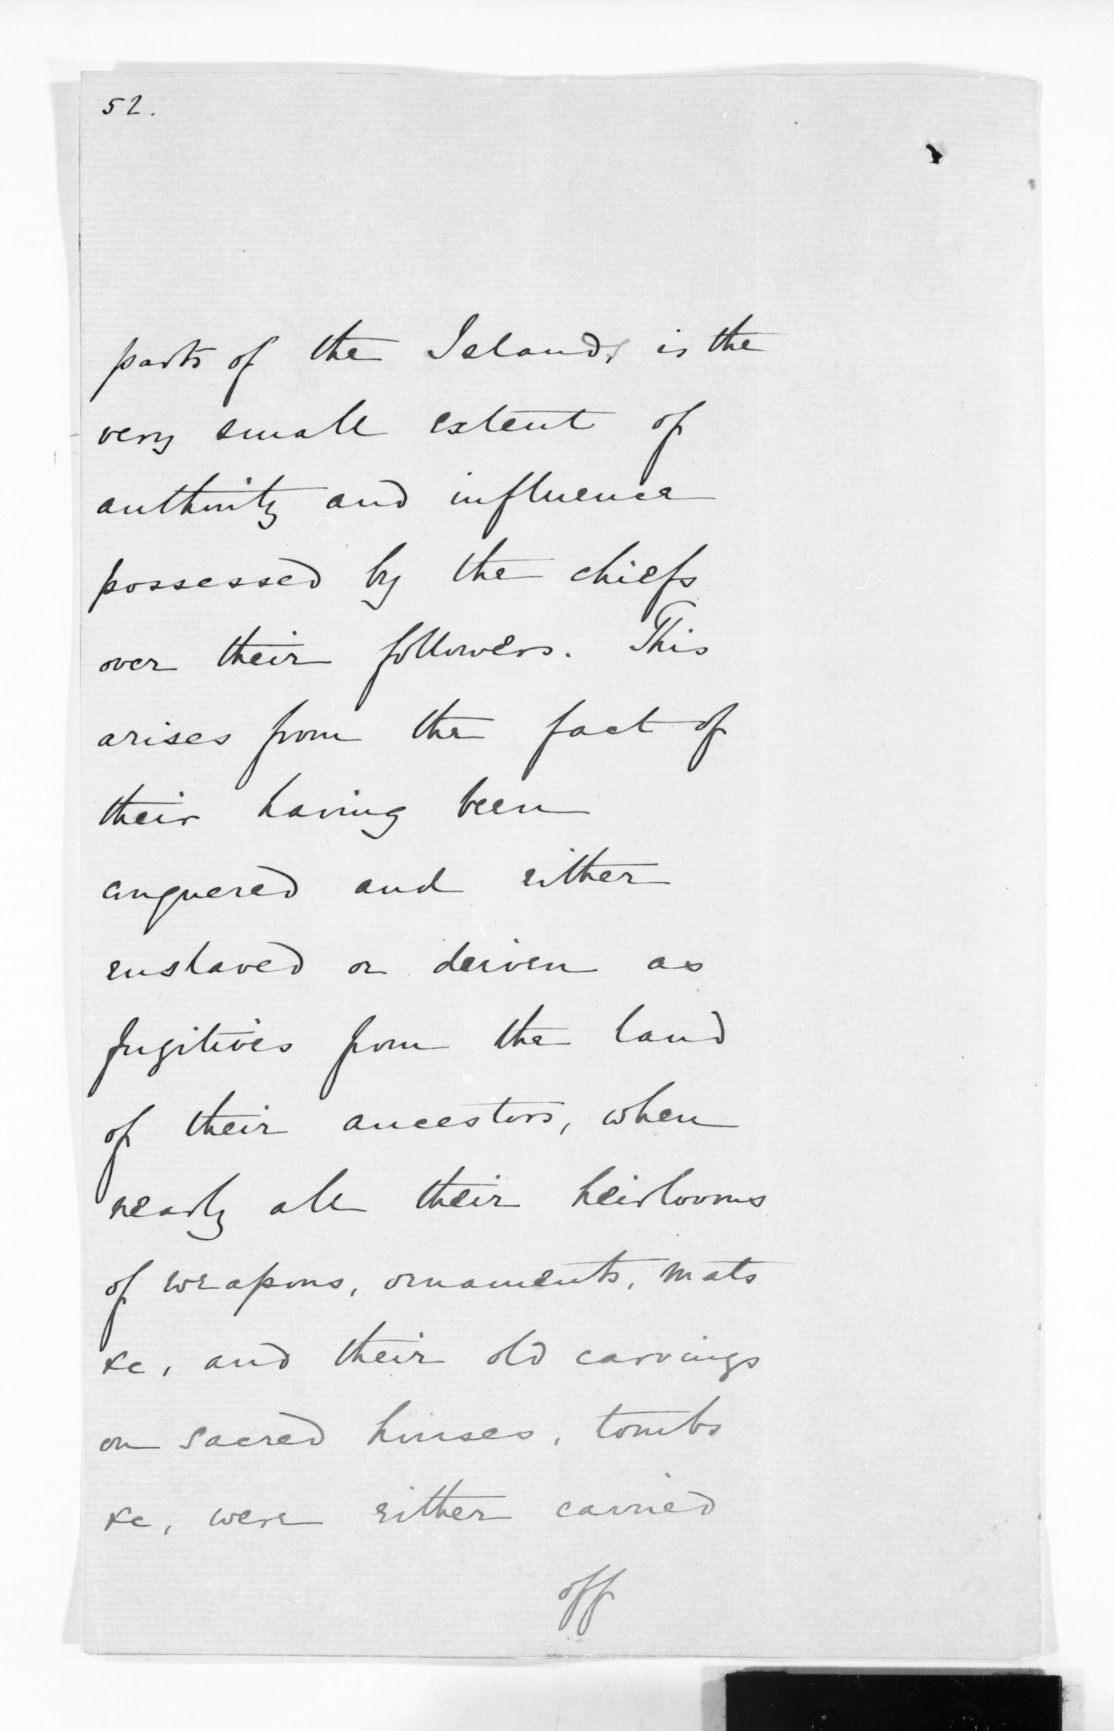 52.
parts of the Island, is the
very small extent of
authority and influence
possessed by the chiefs
over their followers. This
arises from the fact of
their having been
conquered and either
enslaved or driven as
fugitives from the land
of their ancestors, when
nearly all their heirlooms
of weapons, ornaments, mats
&c, and their old carvings
on sacred houses, tombs
&c, were either carried
off